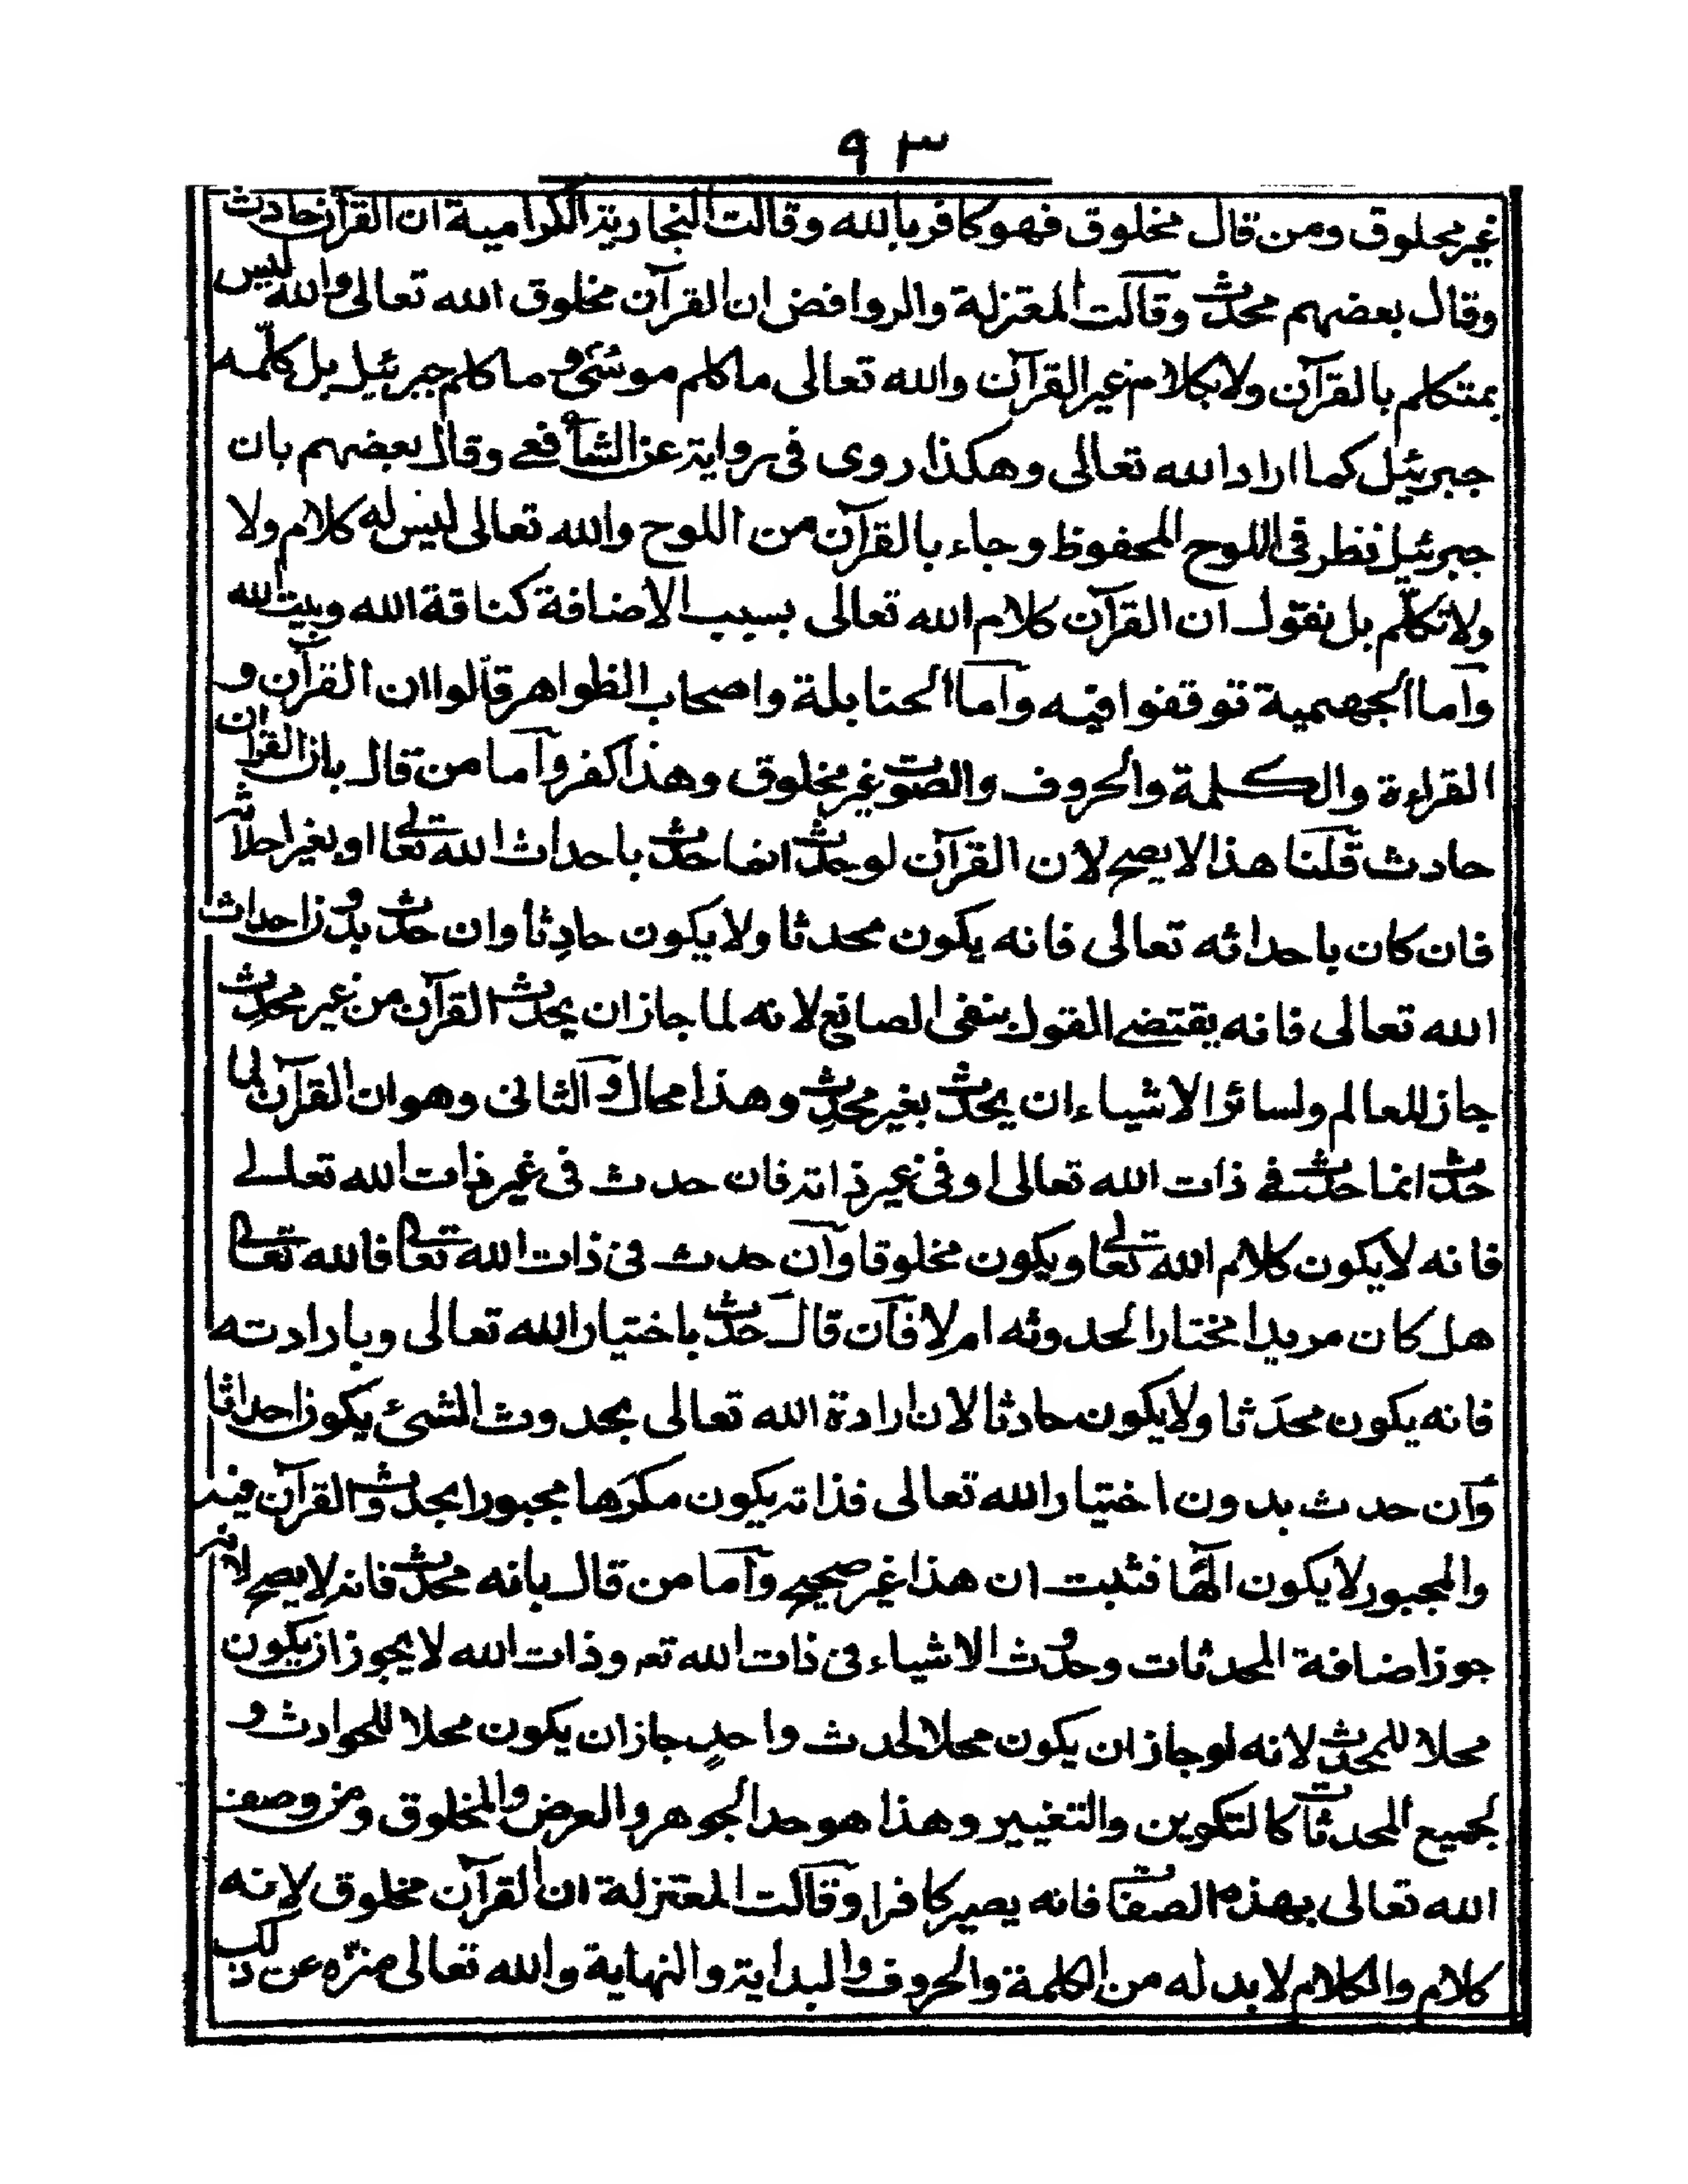 ٩٣
غير مخلوق ومن قال مخلوق فهو كافر بالله وقالت النجارية الكرامية ان القرآن حادث
وقال بعضهم محدث وقالت المعتزلة والروافض ان القرآن مخلوق الله تعالى والله ليس
بمتكلم بالقرآن ولا بكلام غير القرآن والله تعالى ما كلم موسى وما كلم جبرئيل بل كلّمه
جبرئيل كما اراد الله تعالى وهكذا روى فى رواية عن الشافعے وقال بعضهم بان
جبرئيل نظر فى اللوح المحفوظ وجاء بالقرآن من اللوح والله تعالى ليس له كلام ولا
ولا تكلّم بل نقول ان القرآن كلام الله تعالى بسبب الاضافة كناقة الله وبيت الله
وآما الجهمية توقفوا فيه وآما الحنابلة واصحاب الظواهر قالوا ان القرآن و
القراءة والكلمة والحروف والصوت غير مخلوق وهذا كفر وآما من قال بان القرآن
حادث قلنا هذا لا يصح لان القرآن لو حدث انما حدث باحداث الله تعالى او بغير احداثه
فان كان باحداثه تعالى فانه يكون محدثا ولا يكون حادِثا وان حدث بدون احداث
الله تعالى فانه يقتضے القول بنفى الصانع لانه لما جاز ان يحدث القرآن من غير محدِث
جاز للعالم ولسائر الاشياء ان يحدث بغير محدِث وهذا محال والثانى وهو ان القرآن لما
حدث انما حدث فے ذات الله تعالى او فى غير ذاته فان حدث فى غير ذات الله تعالے
فانه لا يكون كلام الله تعالى ويكون مخلوقا وآن حدث فى ذات الله تعالى فالله تعالى
هل كان مريدا مختارا لحدوثه ام لا فآن قال حدث باختيار الله تعالى وبارادته
فانه يكون محدَثا ولا يكون حادثا لان ارادة الله تعالى بحدوث الشئ يكون احداثا
وآن حدث بدون اختيار الله تعالى فذاته يكون مكرَها مجبورا بحدوث القرآن فيه
والمجبور لا يكون الٰهًا فثبت ان هذا غير صحيح وآما من قال بانه محدث فانه لا يصح لانه
جوز اضافة المحدثات وحدوث الاشياء فى ذات الله تعـ وذات الله لا يجوز ان يكون
محلا للمحدث لانه لو جاز ان يكون محلا لحدث واحدٍ جاز ان يكون محلا للحوادث و
لجميع المحدثات كالتكوين والتغيير وهذا هو حد الجوهر والعرض والمخلوق ومن وصف
الله تعالى بهذه الصفات فانه يصير كافرا وقالت المعتزلة ان القرآن مخلوق لانه
كلام والكلام لا بد له من الكلمة والحروف والبداية والنهاية والله تعالى منزّه عن ذلك